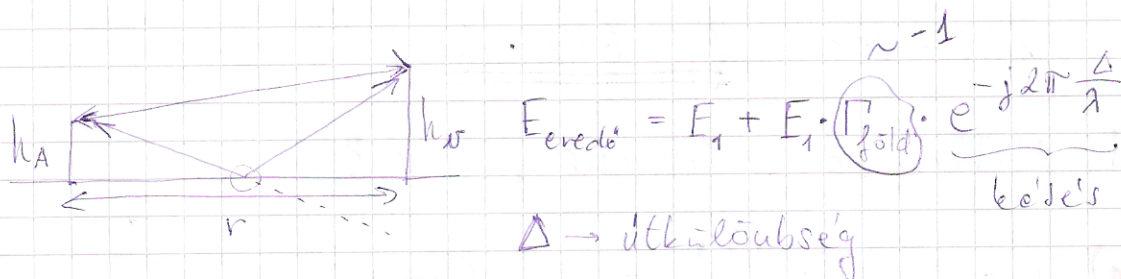 ~ -1
h_A h_v E_eredő = E_1 + E_1 · Γ_föld · e^{-j2π Δ/λ}
késés
r
Δ → útkülönbség